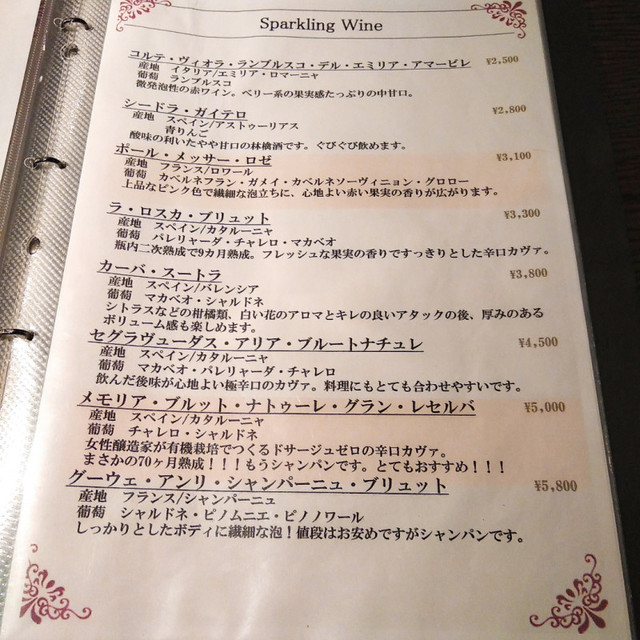 Sparkling Wine
コルテ・ヴィオラ・ランブルスコ・デル・エミリア・アマービレ ¥2,500
産地 イタリア/エミリア・ロマーニャ
葡萄 ランブルスコ
微発泡性の赤ワイン。ベリー系の果実感たっぷりの中甘口。
シードラ・ガイテロ ¥2,800
産地 スペイン/アストゥーリアス
青りんご
酸味の利いたやや甘口の林檎酒です。ぐびぐび飲めます。
ポール・メッサー・ロゼ ¥3,100
産地 フランス/ロワール
葡萄 カベルネフラン・ガメイ・カベルネソーヴィニョン・グロロー
上品なピンク色で繊細な泡立ちに、心地よい赤い果実の香りが広がります。
ラ・ロスカ・ブリュット ¥3,300
産地 スペイン/カタルーニャ
葡萄 パレリャーダ・チャレロ・マカベオ
瓶内二次熟成で9カ月熟成。フレッシュな果実の香りですっきりとした辛口カヴァ。
カーバ・スートラ ¥3,800
産地 スペイン/バレンシア
葡萄 マカベオ・シャルドネ
シトラスなどの柑橘類、白い花のアロマとキレの良いアタックの後、厚みのある
ボリューム感も楽しめます。
セグラヴューダス・アリア・ブルートナチュレ ¥4,500
産地 スペイン/カタルーニャ
葡萄 マカベオ・パレリャーダ・チャレロ
飲んだ後味が心地よい極辛口のカヴァ。料理にもとても合わせやすいです。
メモリア・ブルット・ナトゥーレ・グラン・レセルバ ¥5,000
産地 スペイン/カタルーニャ
葡萄 チャレロ・シャルドネ
女性醸造家が有機栽培でつくるドサージュゼロの辛口カヴァ。
まさかの70ヶ月熟成!!!もうシャンパンです。とてもおすすめ!!!
グーウェ・アンリ・シャンパーニュ・ブリュット ¥5,800
産地 フランス/シャンパーニュ
葡萄 シャルドネ・ピノムニエ・ピノノワール
しっかりとしたボディに繊細な泡!値段はお安めですがシャンパンです。